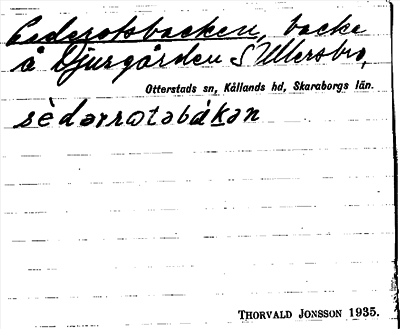 Cederrotsbacken, backe
å Djurgården S Ullersbro,
Otterstads sn, Kållands hd, Skaraborgs län.
sèdərrɷtəbákən
THORVALD JONSSON 1935.